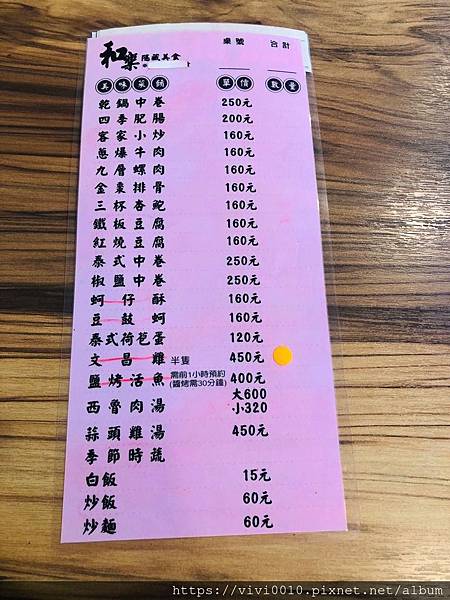 和樂 隱藏美食 桌號 合計
美味菜餚 單價 數量
乾鍋中卷 250元
四季肥腸 200元
客家小炒 160元
蔥爆牛肉 160元
九層螺肉 160元
金棗排骨 160元
三杯杏鮑 160元
鐵板豆腐 160元
紅燒豆腐 160元
泰式中卷 250元
椒鹽中卷 250元
蚵仔酥 160元
豆鼓蚵 160元
泰式荷苞蛋 120元
文昌雞 半隻 450元
鹽烤活魚 需前1小時預約 400元
(鹽烤需30分鐘)
西魯肉湯 大600
小320
蒜頭雞湯 450元
季節時蔬
白飯 15元
炒飯 60元
炒麵 60元
https://vivi0010.pixnet.net/album